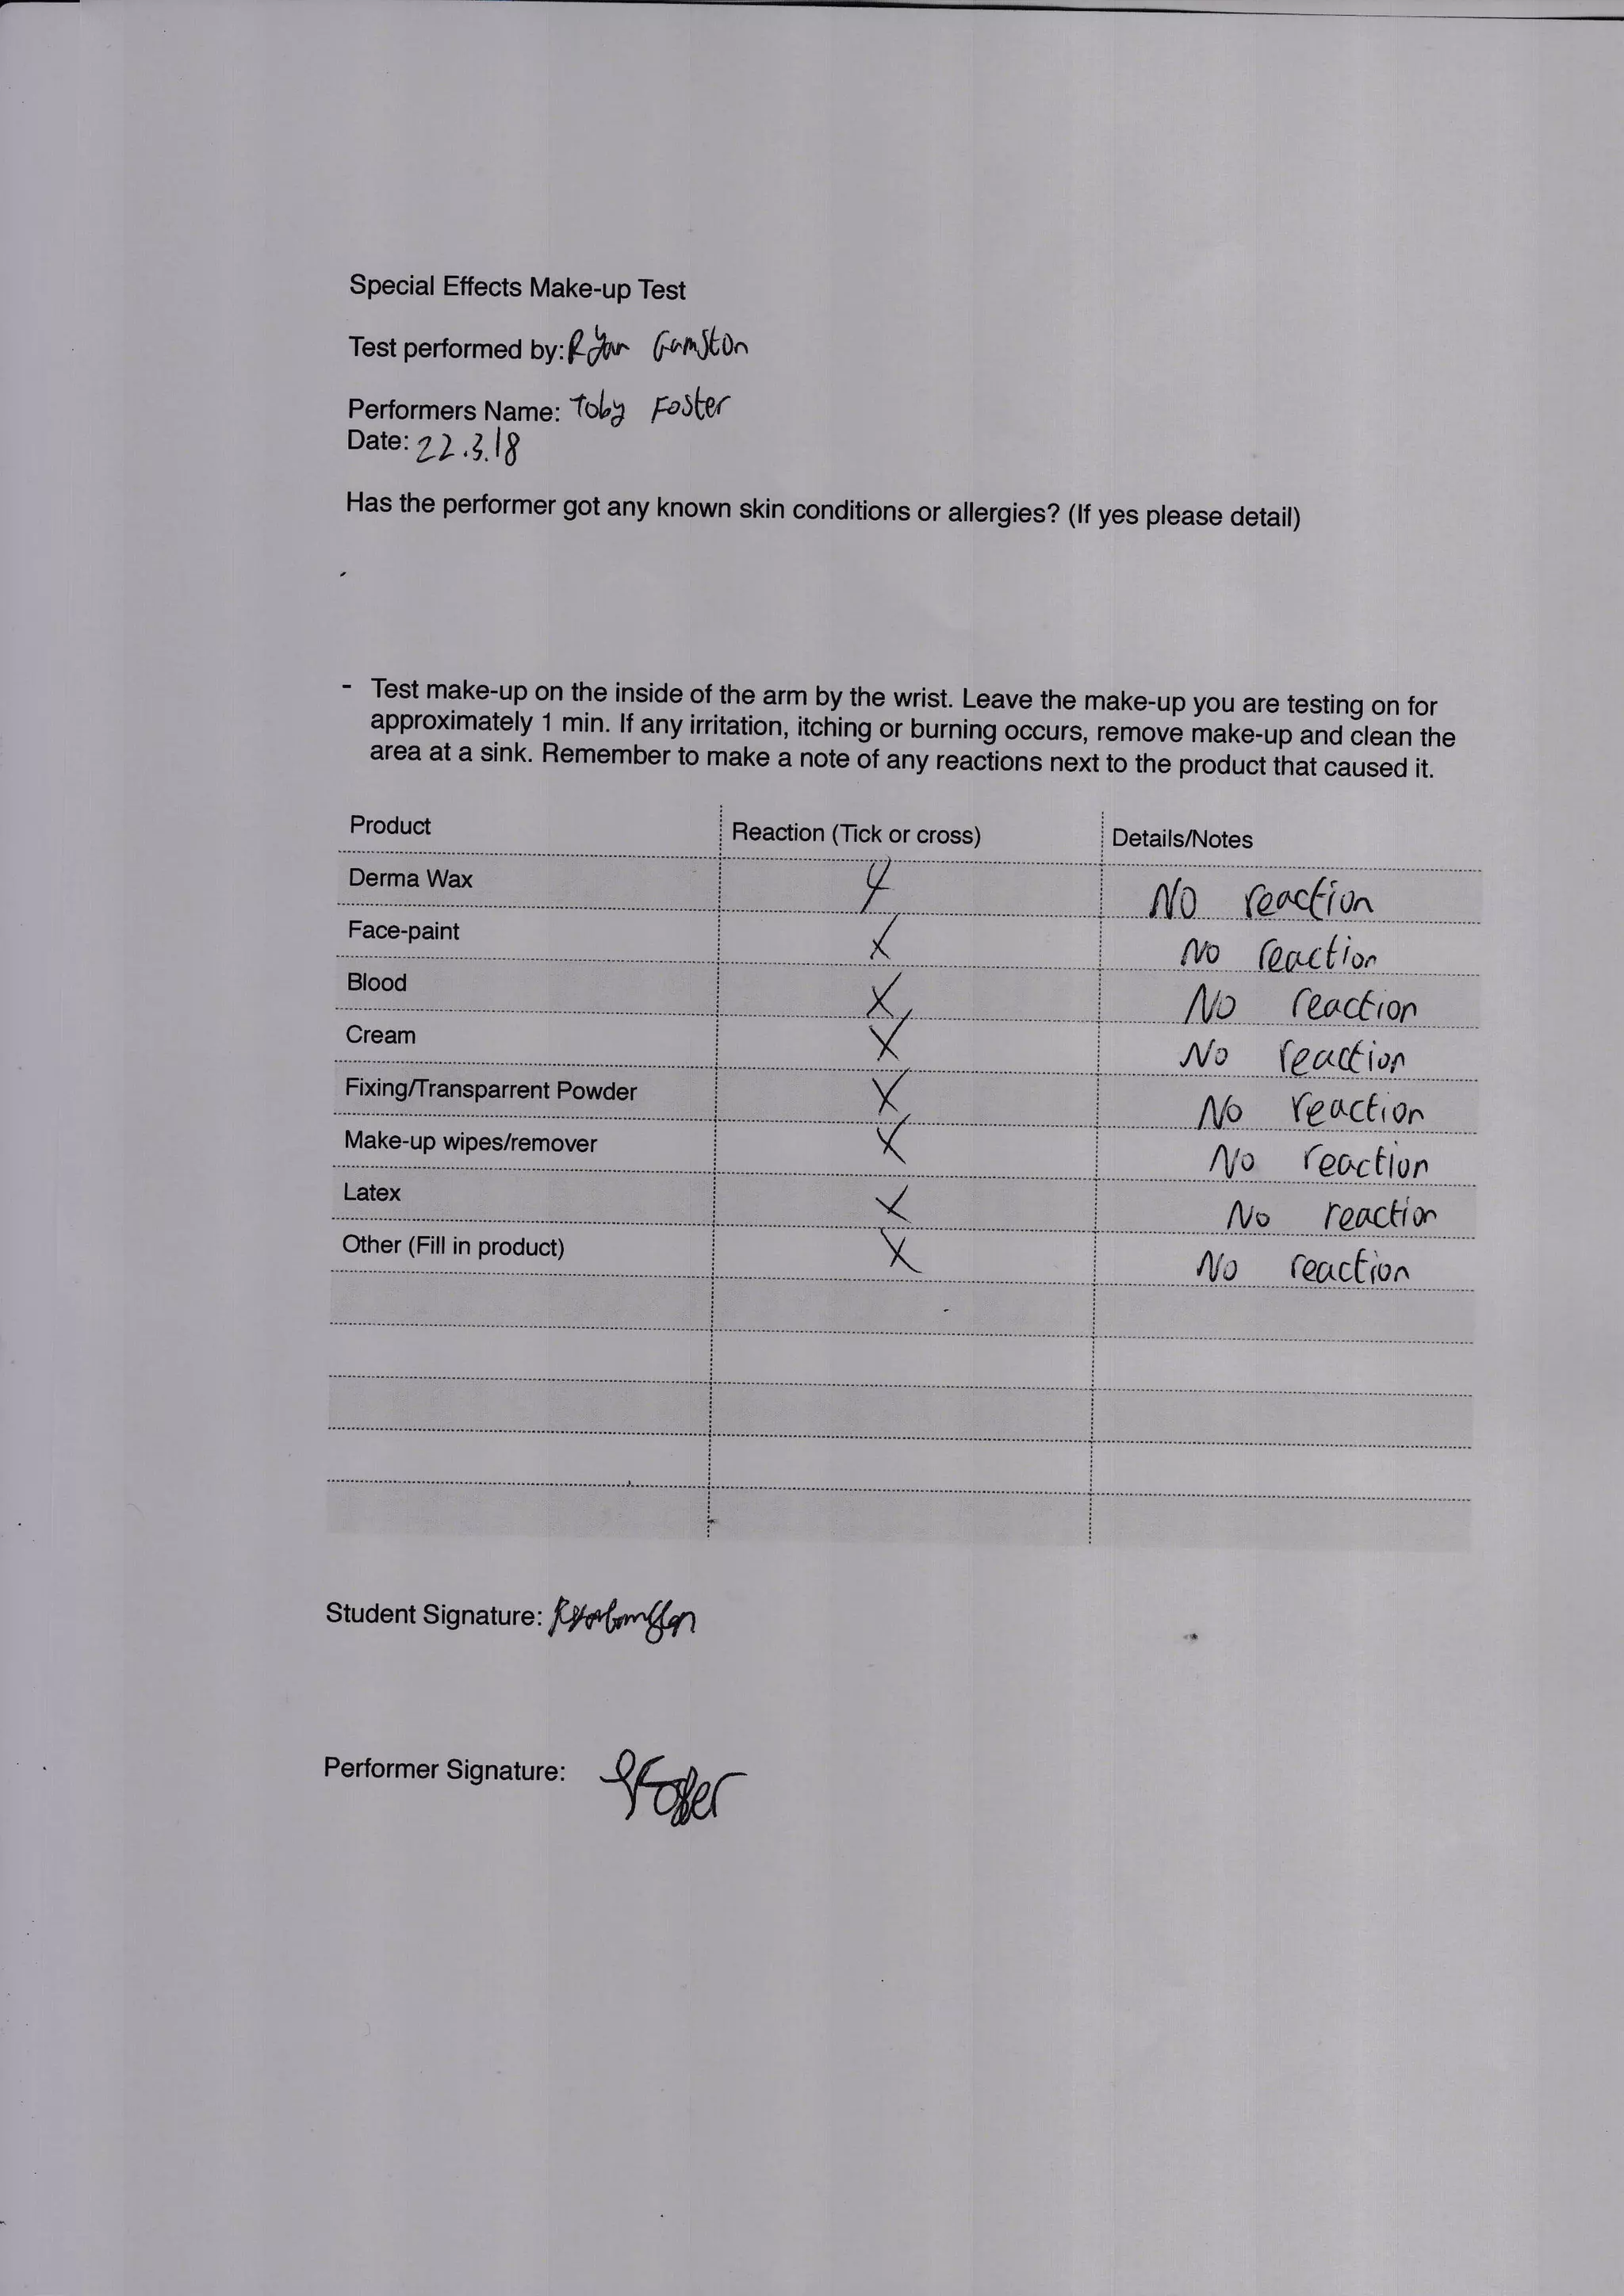 Special Effects Make-up Test
Test performed by: Ryan Gamston
Performers Name: Toby Foster
Date: 22.3.18
Has the performer got any known skin conditions or allergies? (If yes please detail)
- Test make-up on the inside of the arm by the wrist. Leave the make-up you are testing on for
approximately 1 min. If any irritation, itching or burning occurs, remove make-up and clean the
area at a sink. Remember to make a note of any reactions next to the product that caused it.
Product Reaction (Tick or cross) Details/Notes
Derma Wax X No reaction
Face-paint X No reaction
Blood X No reaction
Cream X No reaction
Fixing/Transparrent Powder X No reaction
Make-up wipes/remover X No reaction
Latex X No reaction
Other (Fill in product) X No reaction
Student Signature:
Performer Signature: